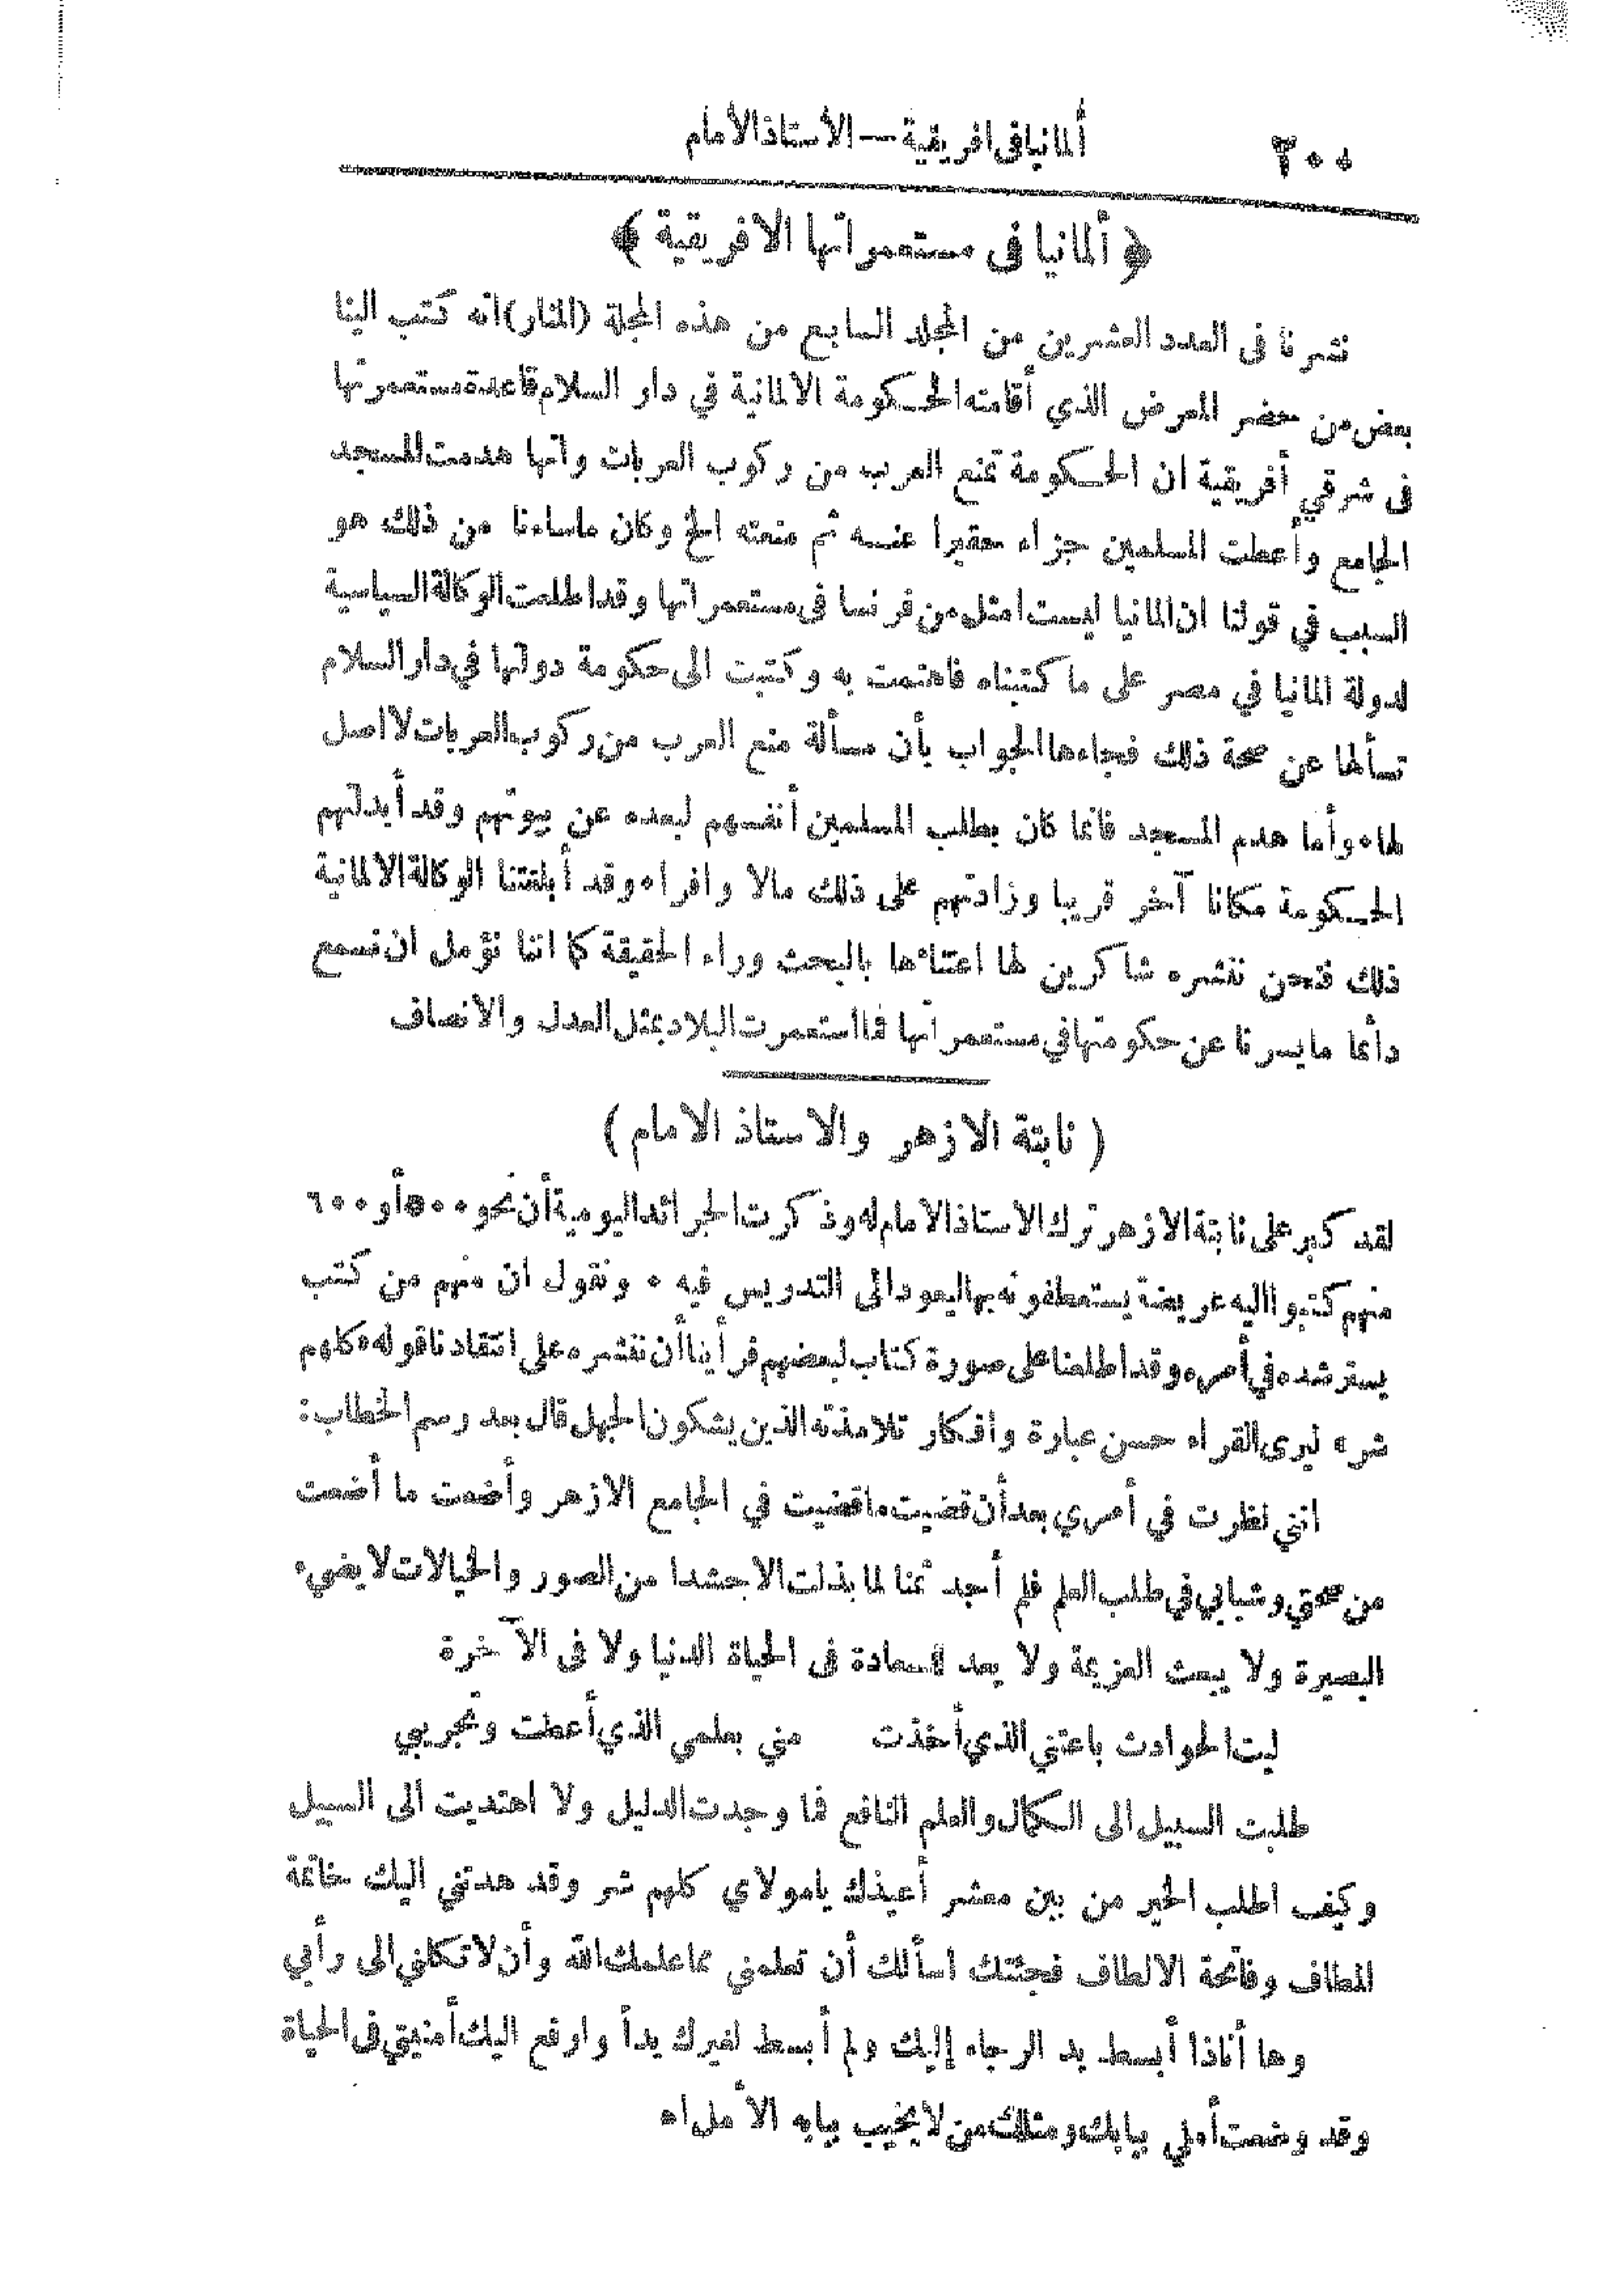 ألمانيا في افريقية — الأستاذ الأمام
٢٠٠
﴿ ألمانيا في مستعمراتها الافريقية ﴾
نشرنا في العدد العشرين من المجلد السابع من هذه المجلة (المنار) انه كتب الينا
بعض من حضر المعرض الذي أقامته الحكومة الالمانية في دار السلام قاعدة مستعمرتها
في شرقي أفريقية ان الحكومة تمنع العرب من ركوب العربات وانها هدمت المسجد
الجامع وأعطت المسلمين جزاء حقيرا عنه ثم منعته الخ وكان ماساءنا من ذلك هو
السبب في قولنا ان المانيا ليست امثل من فرنسا في مستعمراتها وقد اطلعت الوكالة السياسية
لدولة المانيا في مصر على ما كتبناه فاهتمت به وكتبت الى حكومة دولتها في دار السلام
تسألها عن صحة ذلك فجاءها الجواب بأن مسألة منع العرب من ركوب العربات لا اصل
لها ٠ وأما هدم المسجد فانما كان بطلب المسلمين أنفسهم لبعده عن بيوتهم وقد أبدلتهم
الحكومة مكانا آخر قريبا وزادتهم على ذلك مالا وافرا ٠ وقد أبلغتنا الوكالة الالمانية
ذلك فنحن ننشره شاكرين لها اعتناءها بالبحث وراء الحقيقة كما اننا نؤمل ان نسمع
دائما مايسرنا عن حكومتها في مستعمراتها فما استعمرت البلاد بمثل العدل والانصاف
( نابتة الازهر والاستاذ الامام )
لقد كبر على نابتة الازهر ترك الاستاذ الامام له وذكرت الجرائد اليومية أن نحو ٥٠٠ أو ٦٠٠
منهم كتبوا اليه عريضة يستعطفونه بها ليعود الى التدريس فيه ٠ ونقول ان منهم من كتب
يسترشده في أمره وقد اطلعنا على صورة كتاب لبعضهم فرأينا أن ننشره على انتقادنا قوله «كلهم
شر» ليرى القراء حسن عبارة وافكار تلامذته الذين يشكون الجهل قال بعد رسم الخطاب :
انني نظرت في أمري بعد أن قضيت ماقضيت في الجامع الازهر وأضعت ما أضعت
من صحتي وشبابي في طلب العلم فلم أجد ثمنا لما بذلت الا حشدا من الصور والخيالات لا يضيء
البصيرة ولا يبعث العزيمة ولا يعد للسعادة في الحياة الدنيا ولا في الآخرة
ليت الحوادث باعتني الذي أخذت مني بعلمي الذي أعطت وتجريبي
طلبت السبيل الى الكمال والعلم النافع فما وجدت الدليل ولا اهتديت الى السبيل
وكيف اطلب الخير من بين معشر أعيذك يامولاي كلهم شر وقد هدتني اليك خاتمة
المطاف وفاتحة الالطاف فجئتك اسألك أن تعلمني مما علمك الله وأن لا تكلني الى رأيي
وها أناذا أبسط يد الرجاء إليك ولم أبسط لغيرك يداً وارفع اليك أمنيتي في الحياة
وقد وضعت أملي ببابك ومثلك من لا يخيب ببابه الأمل اه